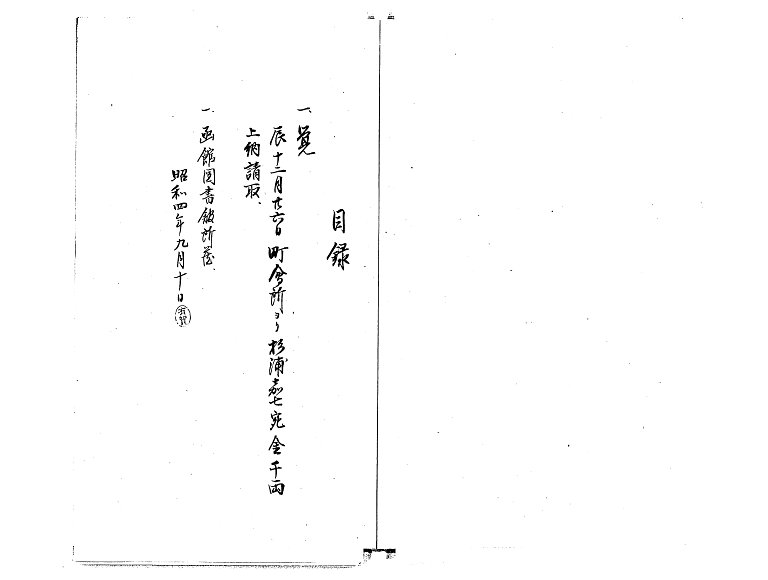 目録
一、覚
辰十二月廿六日町会所ヨリ杉浦嘉七宛金千両
上納請取、
一、函館図書館所蔵、
昭和四年九月十日